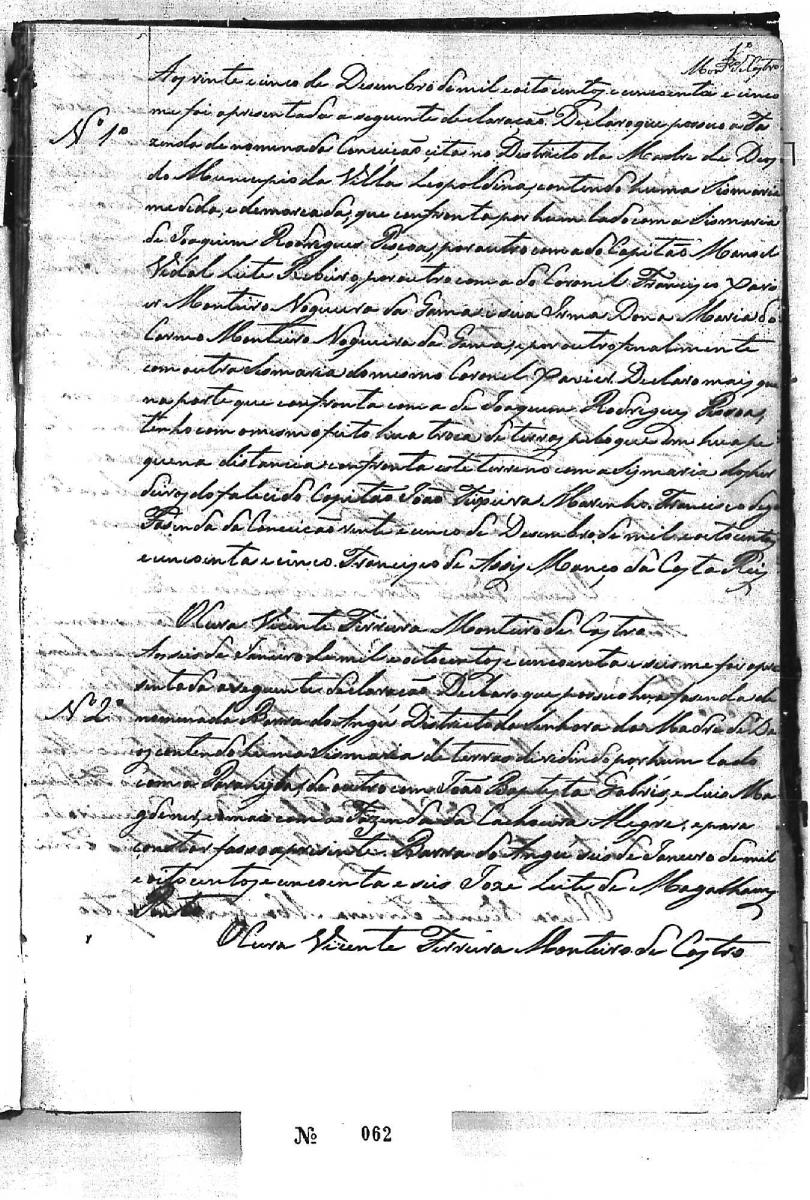 1º
Monº de Castro
Aos vinte e cinco de Desembro de mil e oito centos e cincoenta e cinco
me foi apresentada a seguinte declaração. Declaro que possuo a Fa
Nº 1º
zenda denominada Conceição, cita no Districto da Madre de Deos
do Municipio da Villa Leopoldina, contendo huma Sismaria
medida, e demarcada, que confronta por hum lado com a Sismaria
de Joaquim Rodrigues Pessoa, por outro com a do Capitão Manoel
Vidal Leite Ribeiro, por outro com a do Coronel Francisco Xavi
er Monteiro Nogueira da Gama, e sua Irma Dona Maria do
Carmo Monteiro Nogueira da Gama, e por outro finalmente
com outra Sismaria do mesmo Coronel Xavier. Declaro mais, que
na parte que confronta com a de Joaquim Rodrigues Pessoa,
tenho com o mesmo feito hua troca de terras, pelo que em hua pe
quena distancia confronta este terreno com a Sismaria dos her
deiros do falecido Capitão João Teixeira Marinho. Francisco digo
Fasenda da Conceição vinte e cinco de Desembro de mil e oito centos
e cincoenta e cinco. Francisco de Assis Manço da Costa Reis
O Cura Vicente Ferreira Monteiro de Castro
Aos seis de Janeiro de mil e oito centos e cincoenta e seis me foi apre
sentada a seguinte declaração. Declaro que possuo hua fasenda de
Nº 2º
nominada Barra do Angú Districto da Senhora da Madre de De
os, contendo huma Sismaria de terras dividindo por hum lado
com o Parahyba, de outro com João Baptista Gabriel, e Luis Ma
gdener, e mais com a Fazenda da Cachoeira Alegre, e para
constar fasso a presente. Barra do Angú seis de Janeiro de mil
e oito centos e cincoenta e seis Joze Leite de Magalhaens
Pinto
O Cura Vicente Ferreira Monteiro de Castro
Nº 062